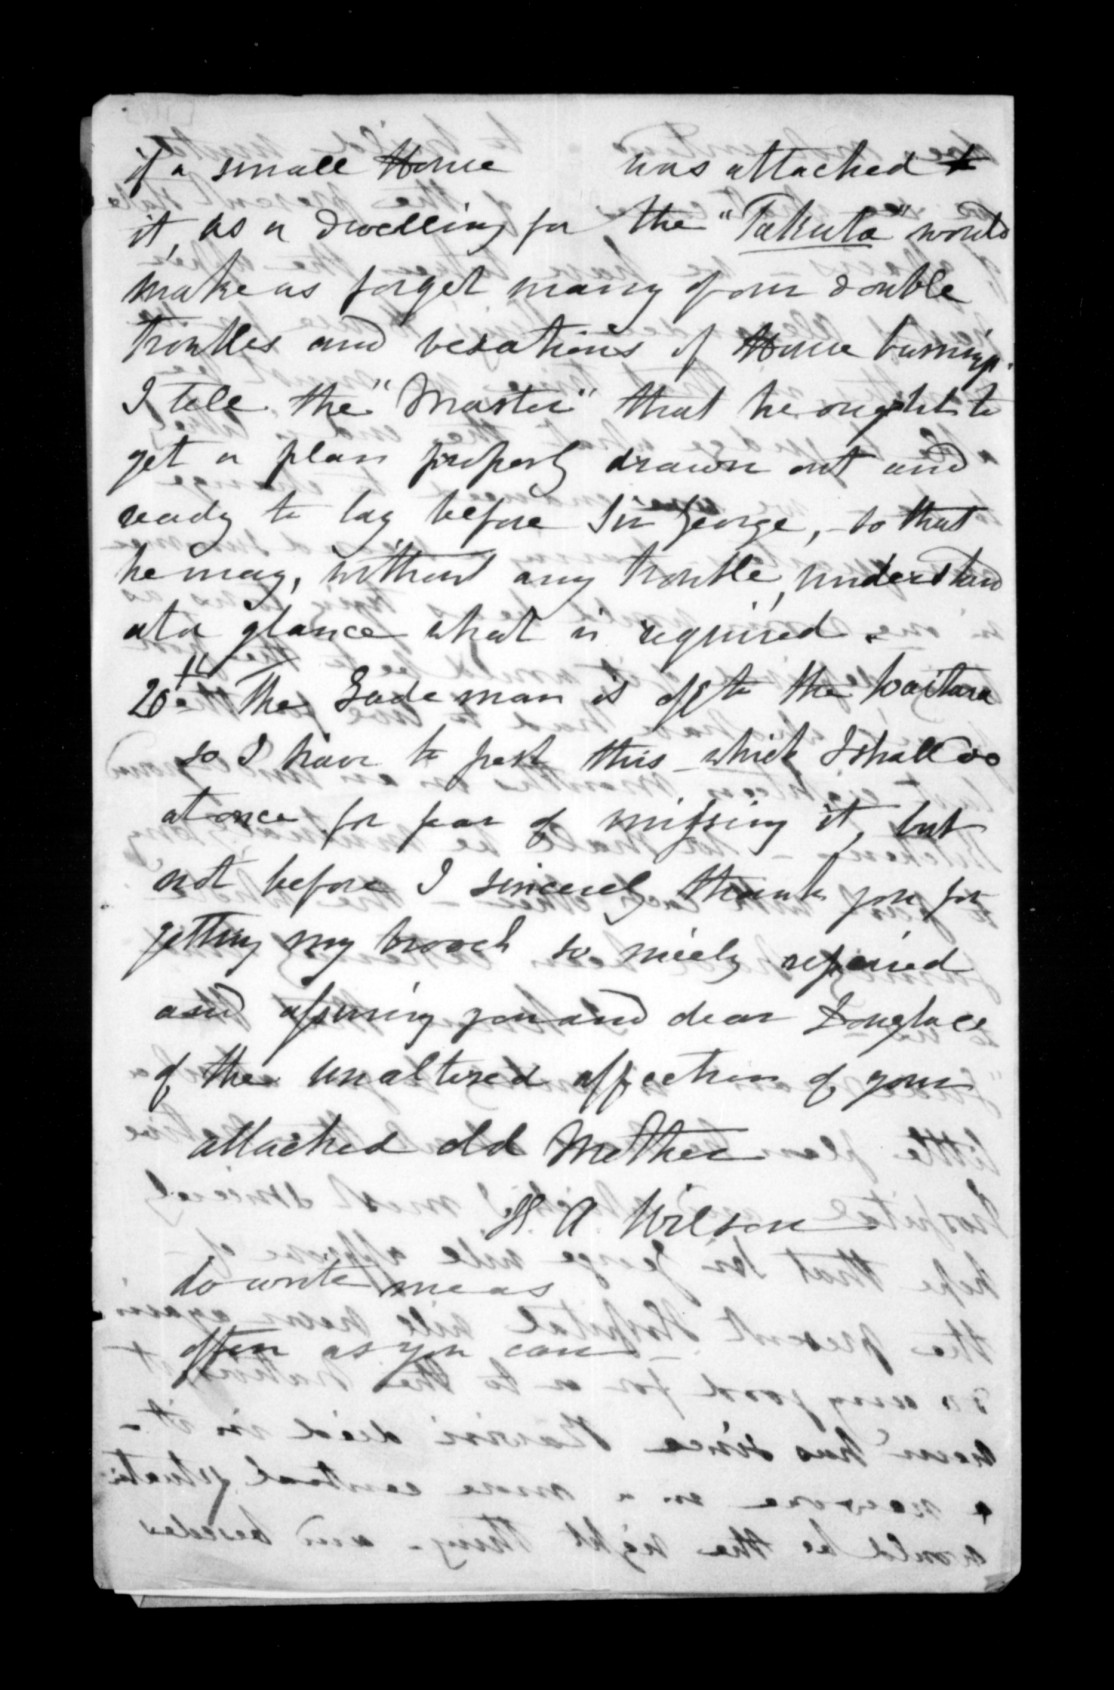 if a small House was attached to
it, as a dwelling for the "Takuta" would
make us forget many of our double
troubles and vexations of House burning.
I tell the "Master" that he ought to
get a plan properly drawn out and
ready to lay before Sir George, - so that
he may, without any trouble, understand
at a glance what is required.
26th The Gude man is off to the Waitara
so I have to post this - which I shall do
at once for fear of missing it, but
not before I sincerely thank you for
getting my brooch so nicely repaired
and assuring you and dear Douglas
of the unaltered affection of your
attached old Mother
A Wilson
do write me as
often as you can -